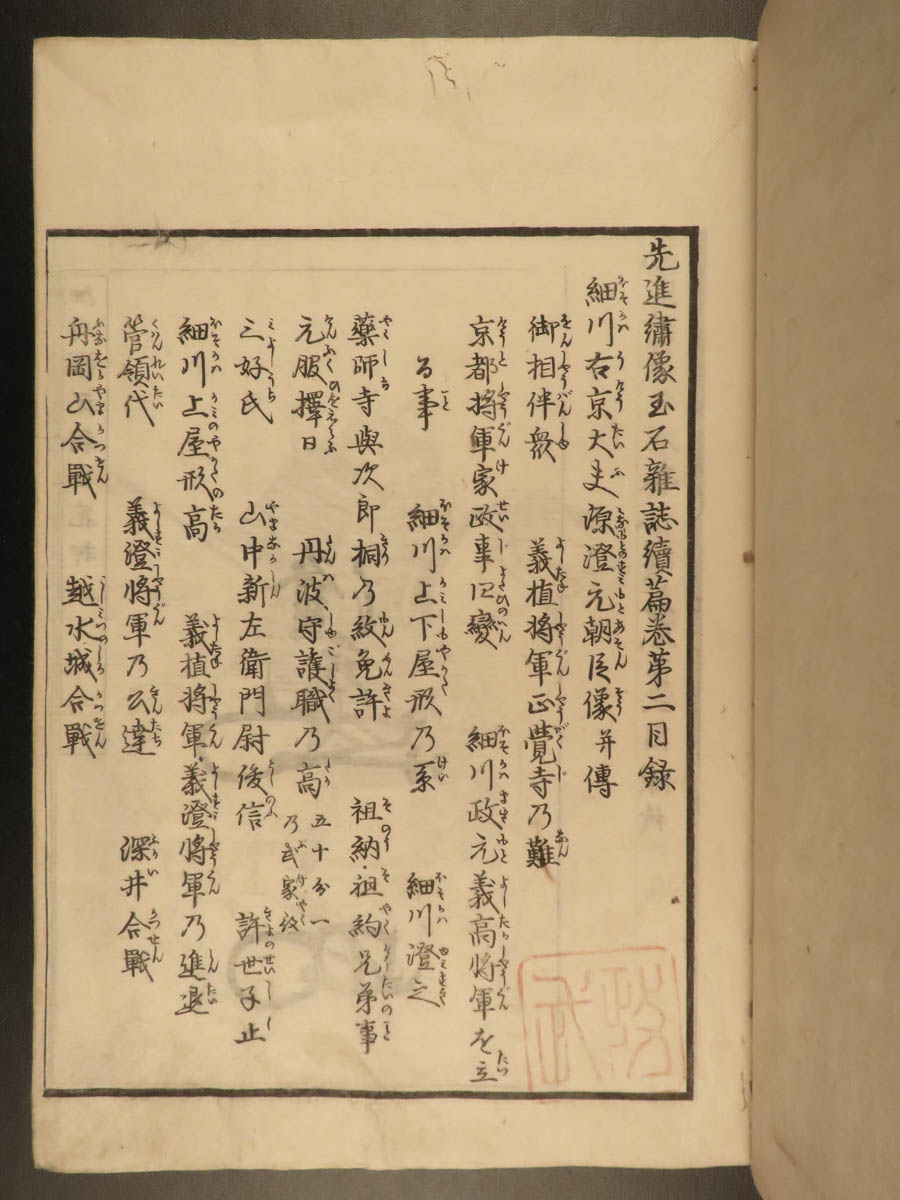 先進繡像玉石雜誌續篇卷第二目録
細川右京大夫源澄元朝臣像并傳
御相伴衆　義植将軍正覺寺乃難
京都将軍家政事四變　細川政元義高将軍を立
る事　細川上下屋形乃系　細川澄之
藥師寺與次郎桐乃紋免許　祖納・祖約兄弟事
元服擇日　丹波守護職乃高　五十分一乃武家役
三好氏　山中新左衛門尉俊信　許世子止
細川上屋形高　義植将軍・義澄将軍乃進退
管領代　義澄将軍乃公達　深井合戰
舟岡山合戰　越水城合戰